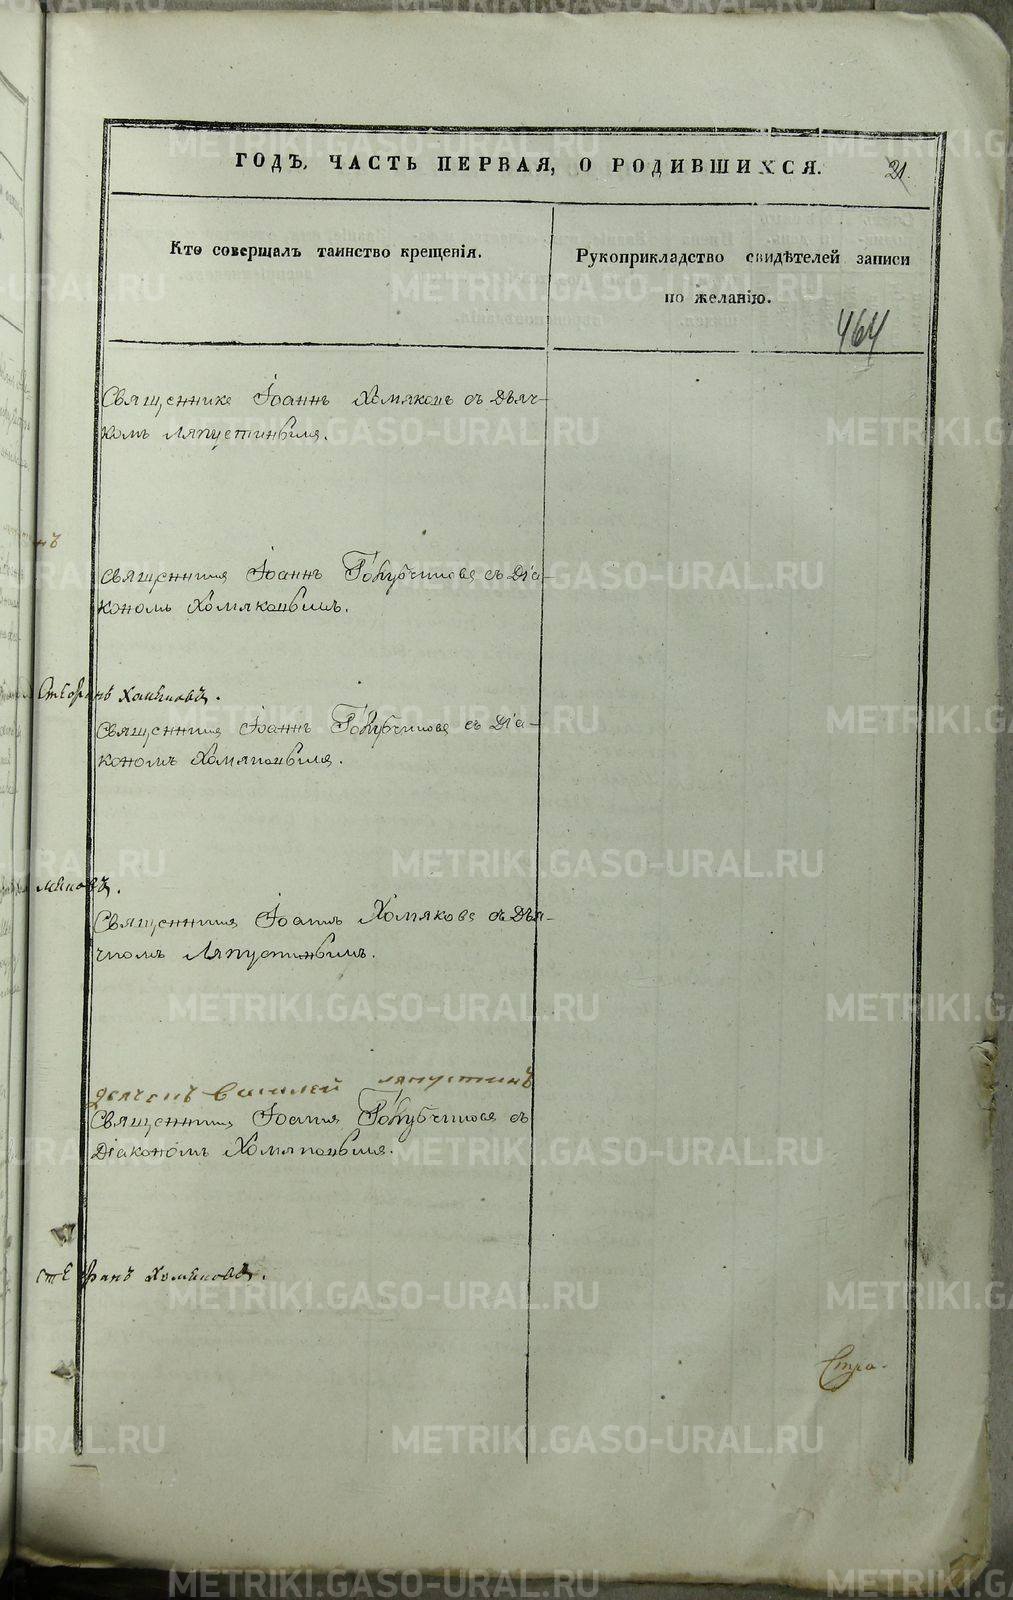 ГОДЪ, ЧАСТЬ ПЕРВАЯ, О РОДИВШИХСЯ.
21.
Кто совершалъ таинство крещенія.
Рукоприкладство свидѣтелей записи
по желанію.
464
Священникъ Іоаннъ Хомяковъ съ Дьяч-
комъ Ляпустинымъ.
нъ
Священникъ Іоаннъ Голубчиковъ съ Діа-
кономъ Хомяковымъ.
Стефанъ Хомяковъ.
Священникъ Іоаннъ Голубчиковъ съ Діа-
кономъ Хомяковымъ.
мяковъ.
Священникъ Іоаннъ Хомяковъ съ Дья-
чкомъ Ляпустинымъ.
дьячекъ Василей Ляпустинъ
Священникъ Іоаннъ Голубчиковъ съ
Діакономъ Хомяковымъ.
Стефанъ Хомяковъ.
METRIKI.GASO-URAL.RU